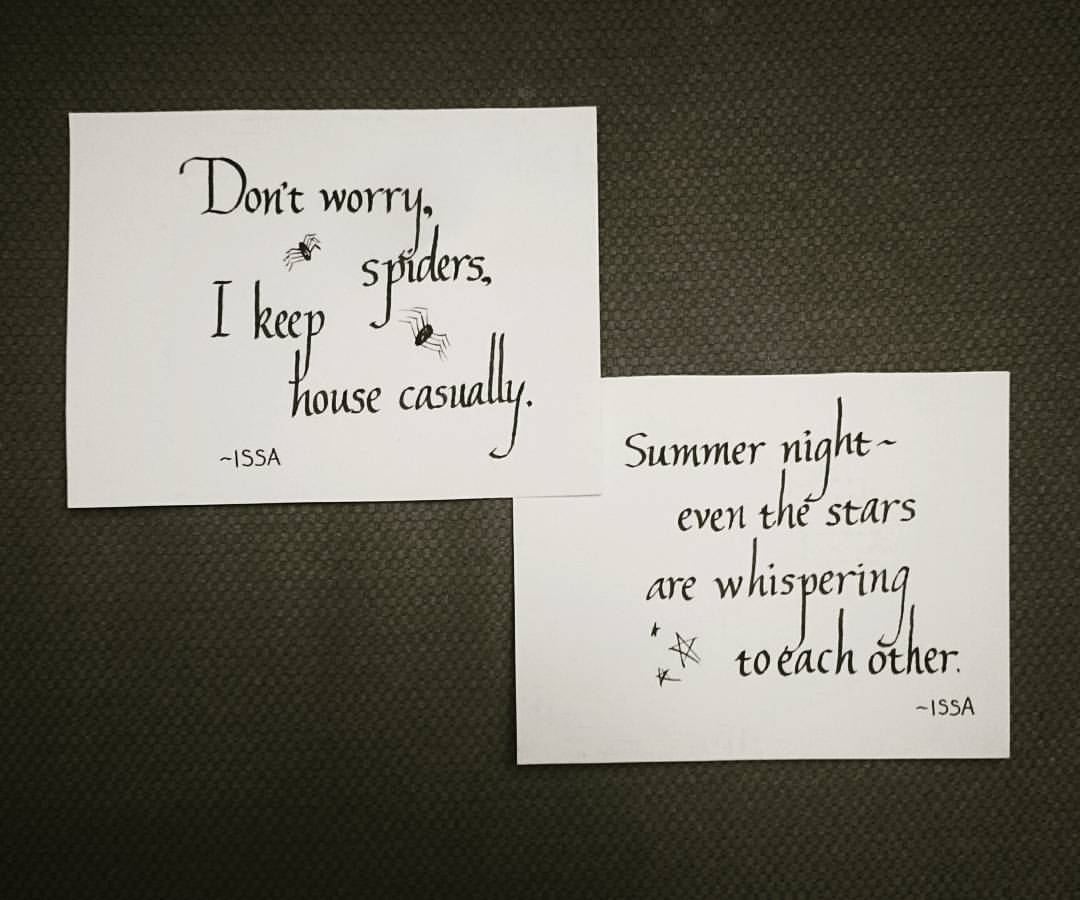 Don't worry,
spiders,
I keep
house casually.
~ISSA
Summer night~
even the stars
are whispering
to each other.
~ISSA